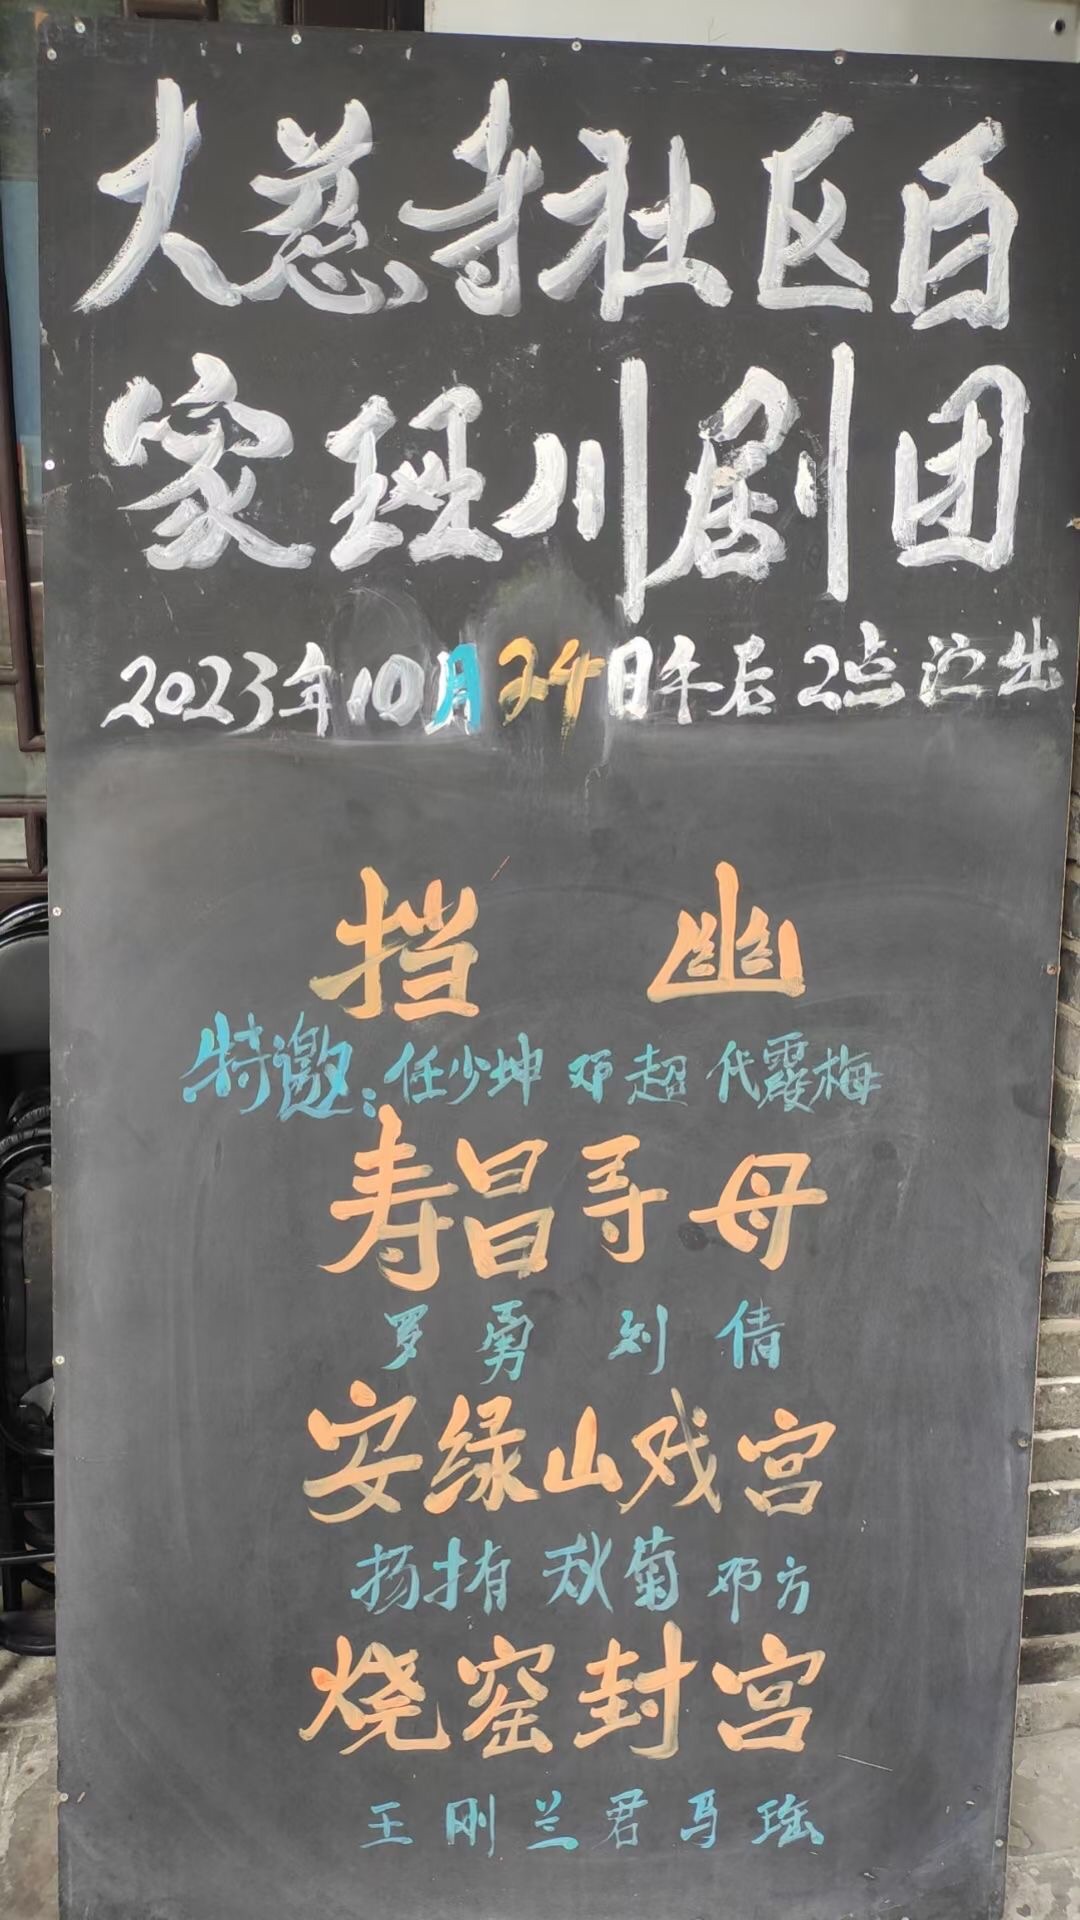 大慈寺社区百
家班川剧团
2023年10月24日午后2点演出
挡 幽
特邀：任少坤 邓超 代霞梅
寿昌寻母
罗勇 刘倩
安绿山戏宫
扬抟 秋菊 邓方
烧窑封宫
王刚 兰君 马瑶